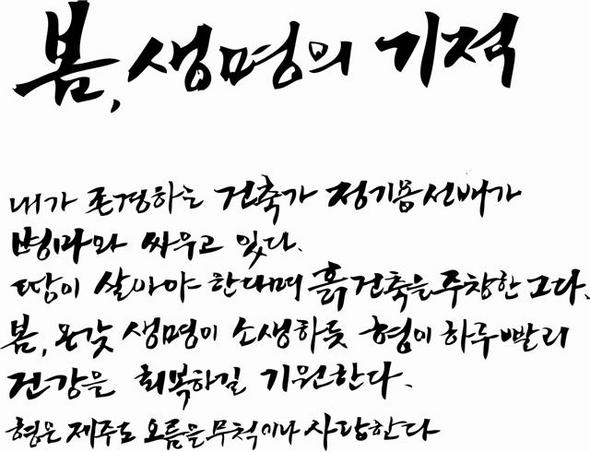 봄, 생명의 기적
내가 존경하는 건축가 정기용 선배가
병마와 싸우고 있다.
땅이 살아야 한다며 흙건축을 주창한 그다.
봄, 온갖 생명이 소생하듯 형이 하루 빨리
건강을 회복하길 기원한다.
형은 제주도 오름을 무척이나 사랑한다